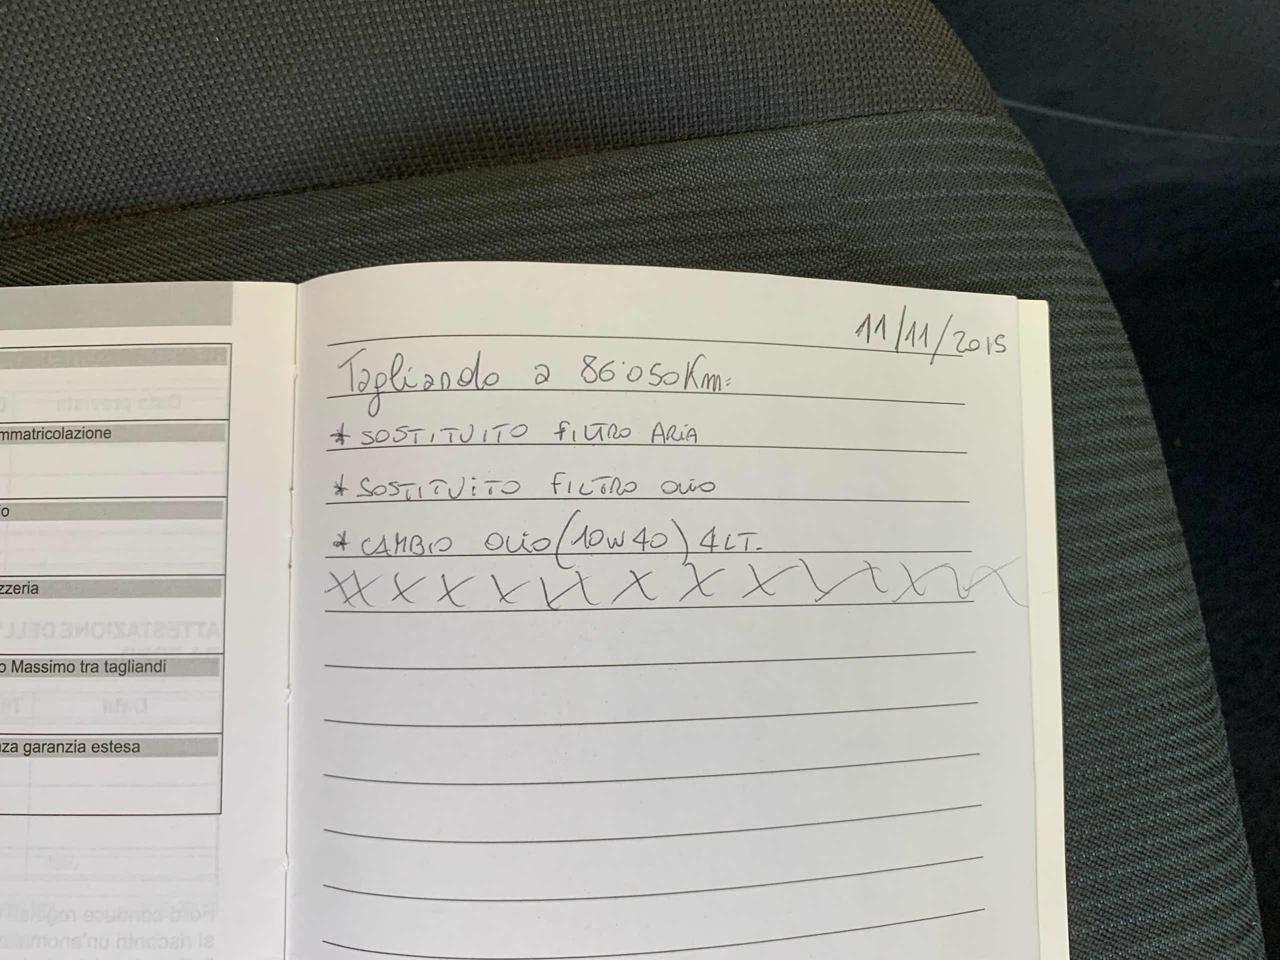 mmatricolazione
o
zzeria
o Massimo tra tagliandi
nza garanzia estesa
11/11/2015
Tagliando a 86'050Km:
* SOSTITUITO FILTRO ARIA
* SOSTITUITO FILTRO OLIO
* CAMBIO OLIO (10W40) 4LT.
XX X X X X X X X X X X X X